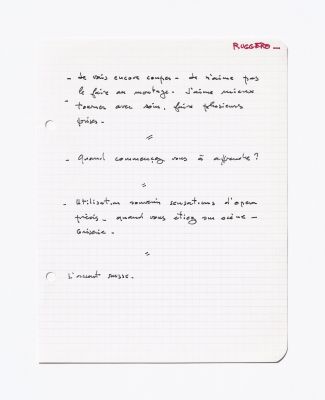 RUGGERO —
- Je vais encore couper - Je n'aime pas
le faire au montage. J'aime mieux
- tourner avec soin, faire plusieurs
prises -
=
- Quand commencez vous à apprendre ?
=
- Utilisation souvenir sensations d'opera
précis - quand vous étiez sur scène -
=
L'accent russe.